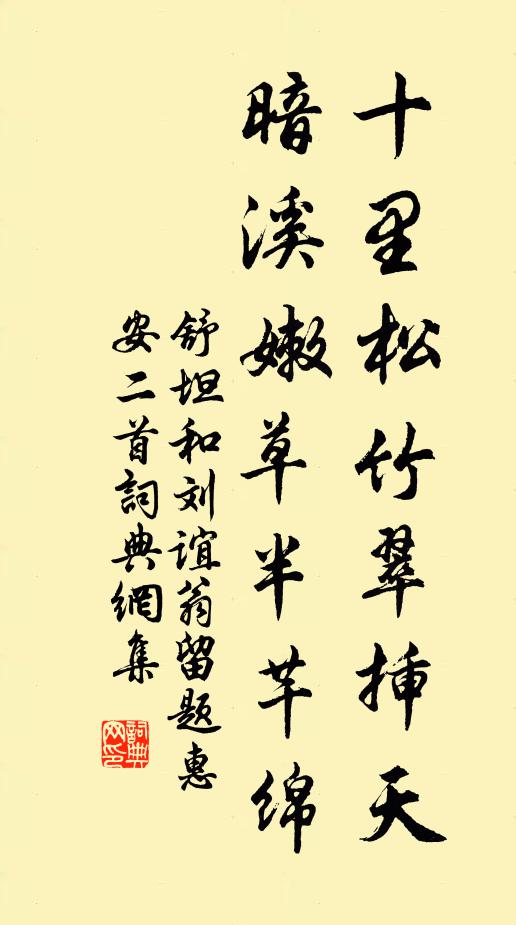 十里松竹翠挿天
暗溪嫩草半芊绵
舒坦和刘谊翁留题惠
安二首詞典網集
詞典
网印